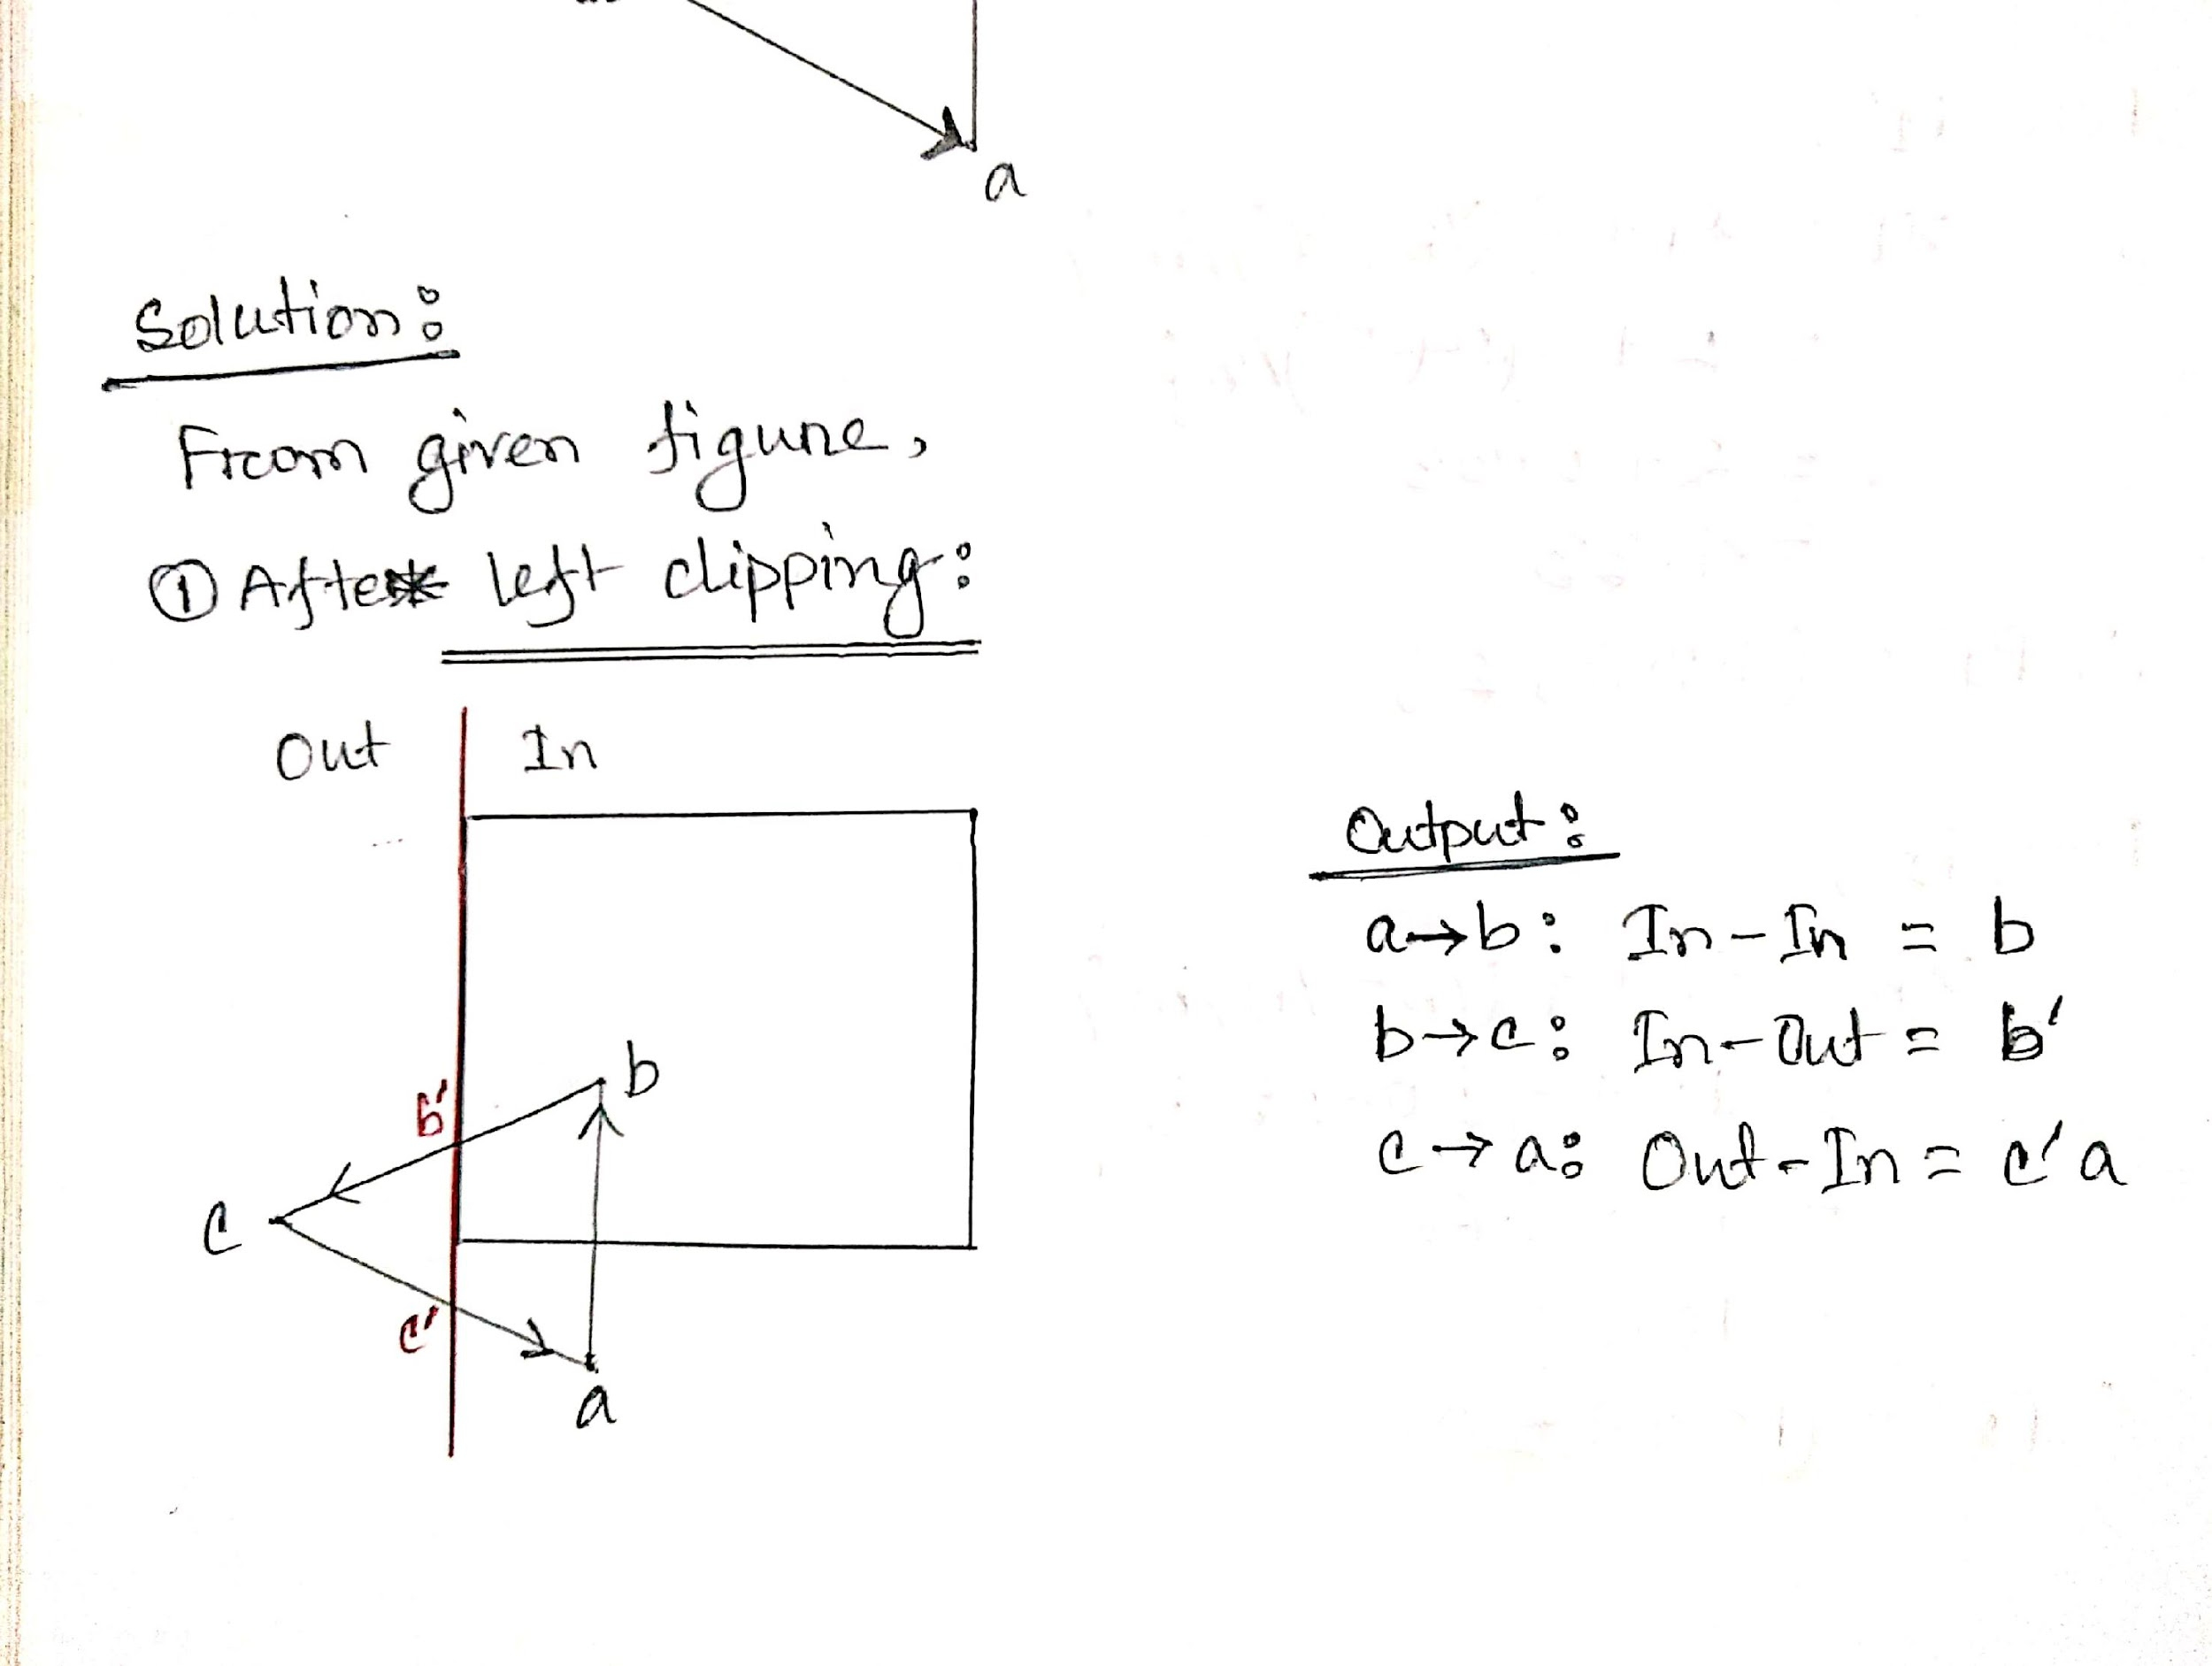 a
Solution:
From given figure,
① After left clipping:
Out In
b'
b
c
c'
a
Output:
a→b: In-In = b
b→c: In-Out = b'
c→a: Out-In = c'a